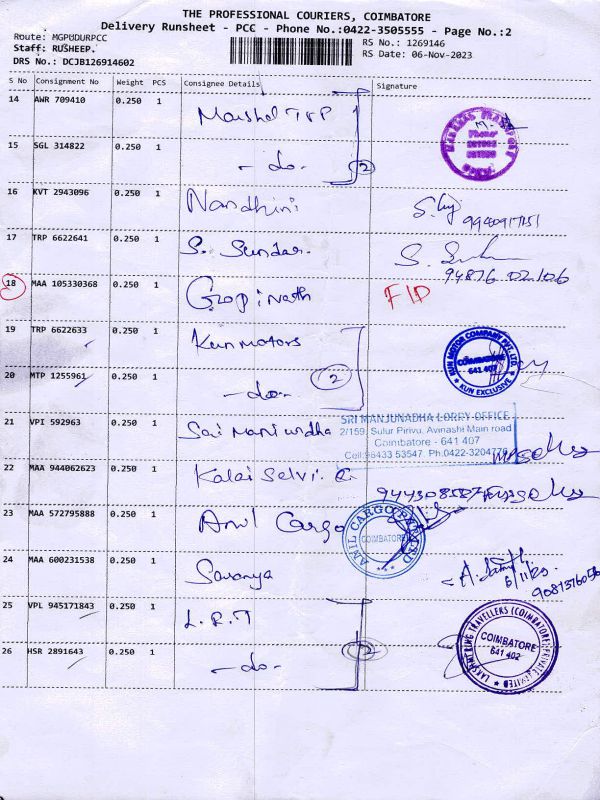 THE PROFESSIONAL COURIERS, COIMBATORE
Delivery Runsheet - PCC - Phone No.:0422-3505555 - Page No.:2
Route: MGPUDURPCC
Staff: RUSHEEP.
DRS No.: DCJB126914602
RS No.: 1269146
RS Date: 06-Nov-2023
S No Consignment No Weight PCS Consignee Details Signature
14 AWR 709410 0.250 1
15 SGL 314822 0.250 1 - do - 2
16 KVT 2943096 0.250 1 Nandhini
17 TRP 6622641 0.250 1 S. Sundar. 94876 02106
18 MAA 105330368 0.250 1 Gopinath F/D
19 TRP 6622633 0.250 1 Kun Motors
KUN MOTOR COMPANY PVT. LTD. COIMBATORE 641 407 KUN EXCLUSIVE
20 MTP 1255961 0.250 1 - do - 2
SRI MANJUNADHA LORRY OFFICE
2/159, Sulur Pirivu, Avinashi Main road
Coimbatore - 641 407
Cell:98433 53547. Ph.0422-3204776
21 VPI 592963 0.250 1 Sai
22 MAA 944062623 0.250 1 Kalai Selvi. G
23 MAA 572795888 0.250 1 Anil Cargo
COIMBATORE
24 MAA 600231538 0.250 1 Saranya
25 VPL 945171843 0.250 1 L.R.T
26 HSR 2891643 0.250 1 - do - 2
COIMBATORE 641 402